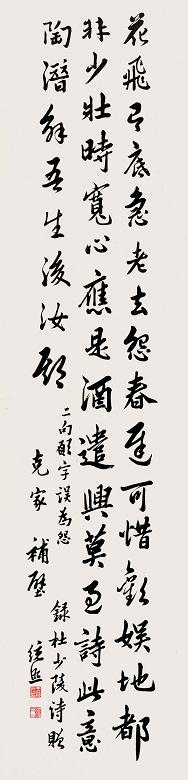 花飛有底急老去怨春遲可惜歡娛地都
非少壯時寬心應是酒遣興莫過詩此意
陶潛解吾生後汝期
二句願字誤為怨 錄杜少陵詩贈
克家 補壁